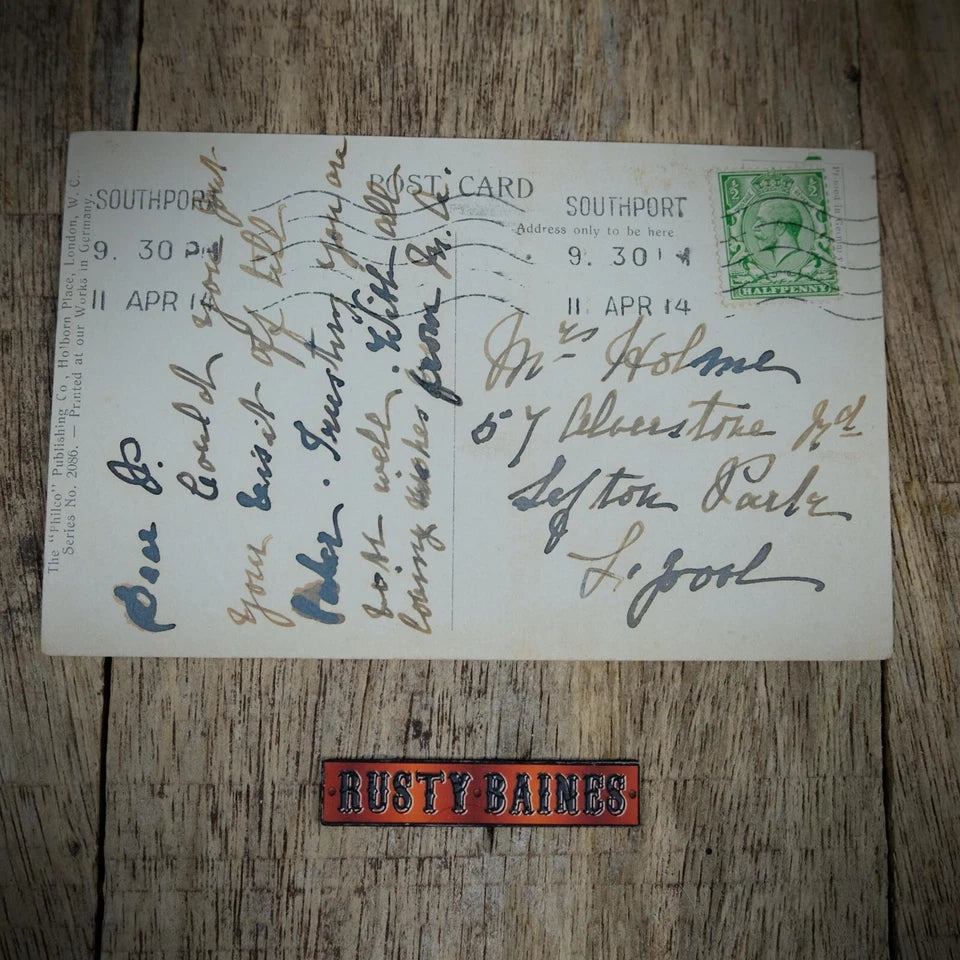 The "Philco" Publishing Co., Holborn Place, London, W. C.
Series No. 2086. — Printed at our Works in Germany.
POST CARD
Address only to be here
SOUTHPORT
9. 30 PM
11 APR 14
SOUTHPORT
9. 30
11 APR 14
½ ½
HALFPENNY
Dear
Could you put
your visit off till
Trusting you are
both well. With all
loving wishes from M.
Mrs Holme
57 Alverstone Rd
Sefton Park
L'pool
RUSTY BAINES